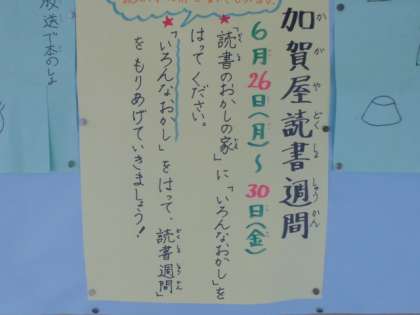 加賀屋読書週間
かがやどくしょしゅうかん
6月26日(月)～30日(金)
★「読書のおかしの家」に「いろんなおかし」を
はってください。
★「いろんなおかし」をはって、読書週間」
をもりあげていきましょう!
放送で本のしょ